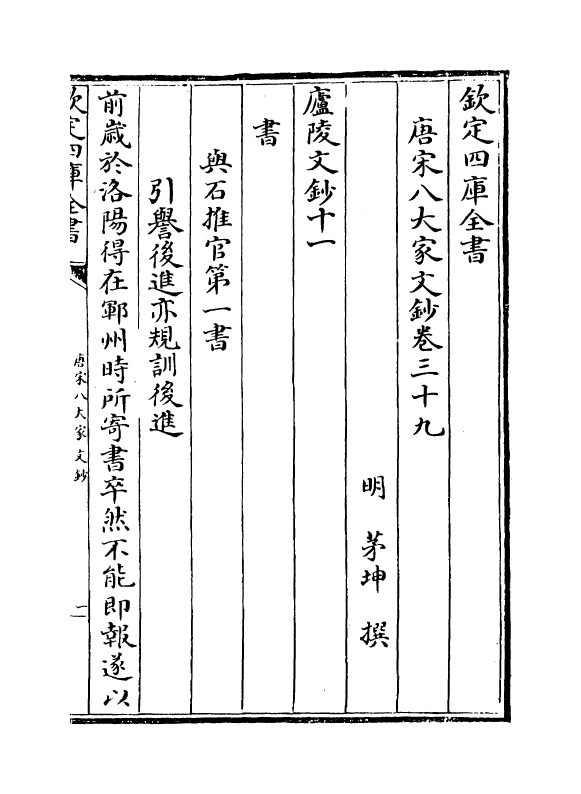 欽定四庫全書
唐宋八大家文鈔卷三十九
明 茅坤 撰
廬陵文鈔十一
書
與石推官第一書
引譽後進亦規訓後進
前歲於洛陽得在鄆州時所寄書卒然不能即報遂以
欽定四庫全書
唐宋八大家文鈔
一